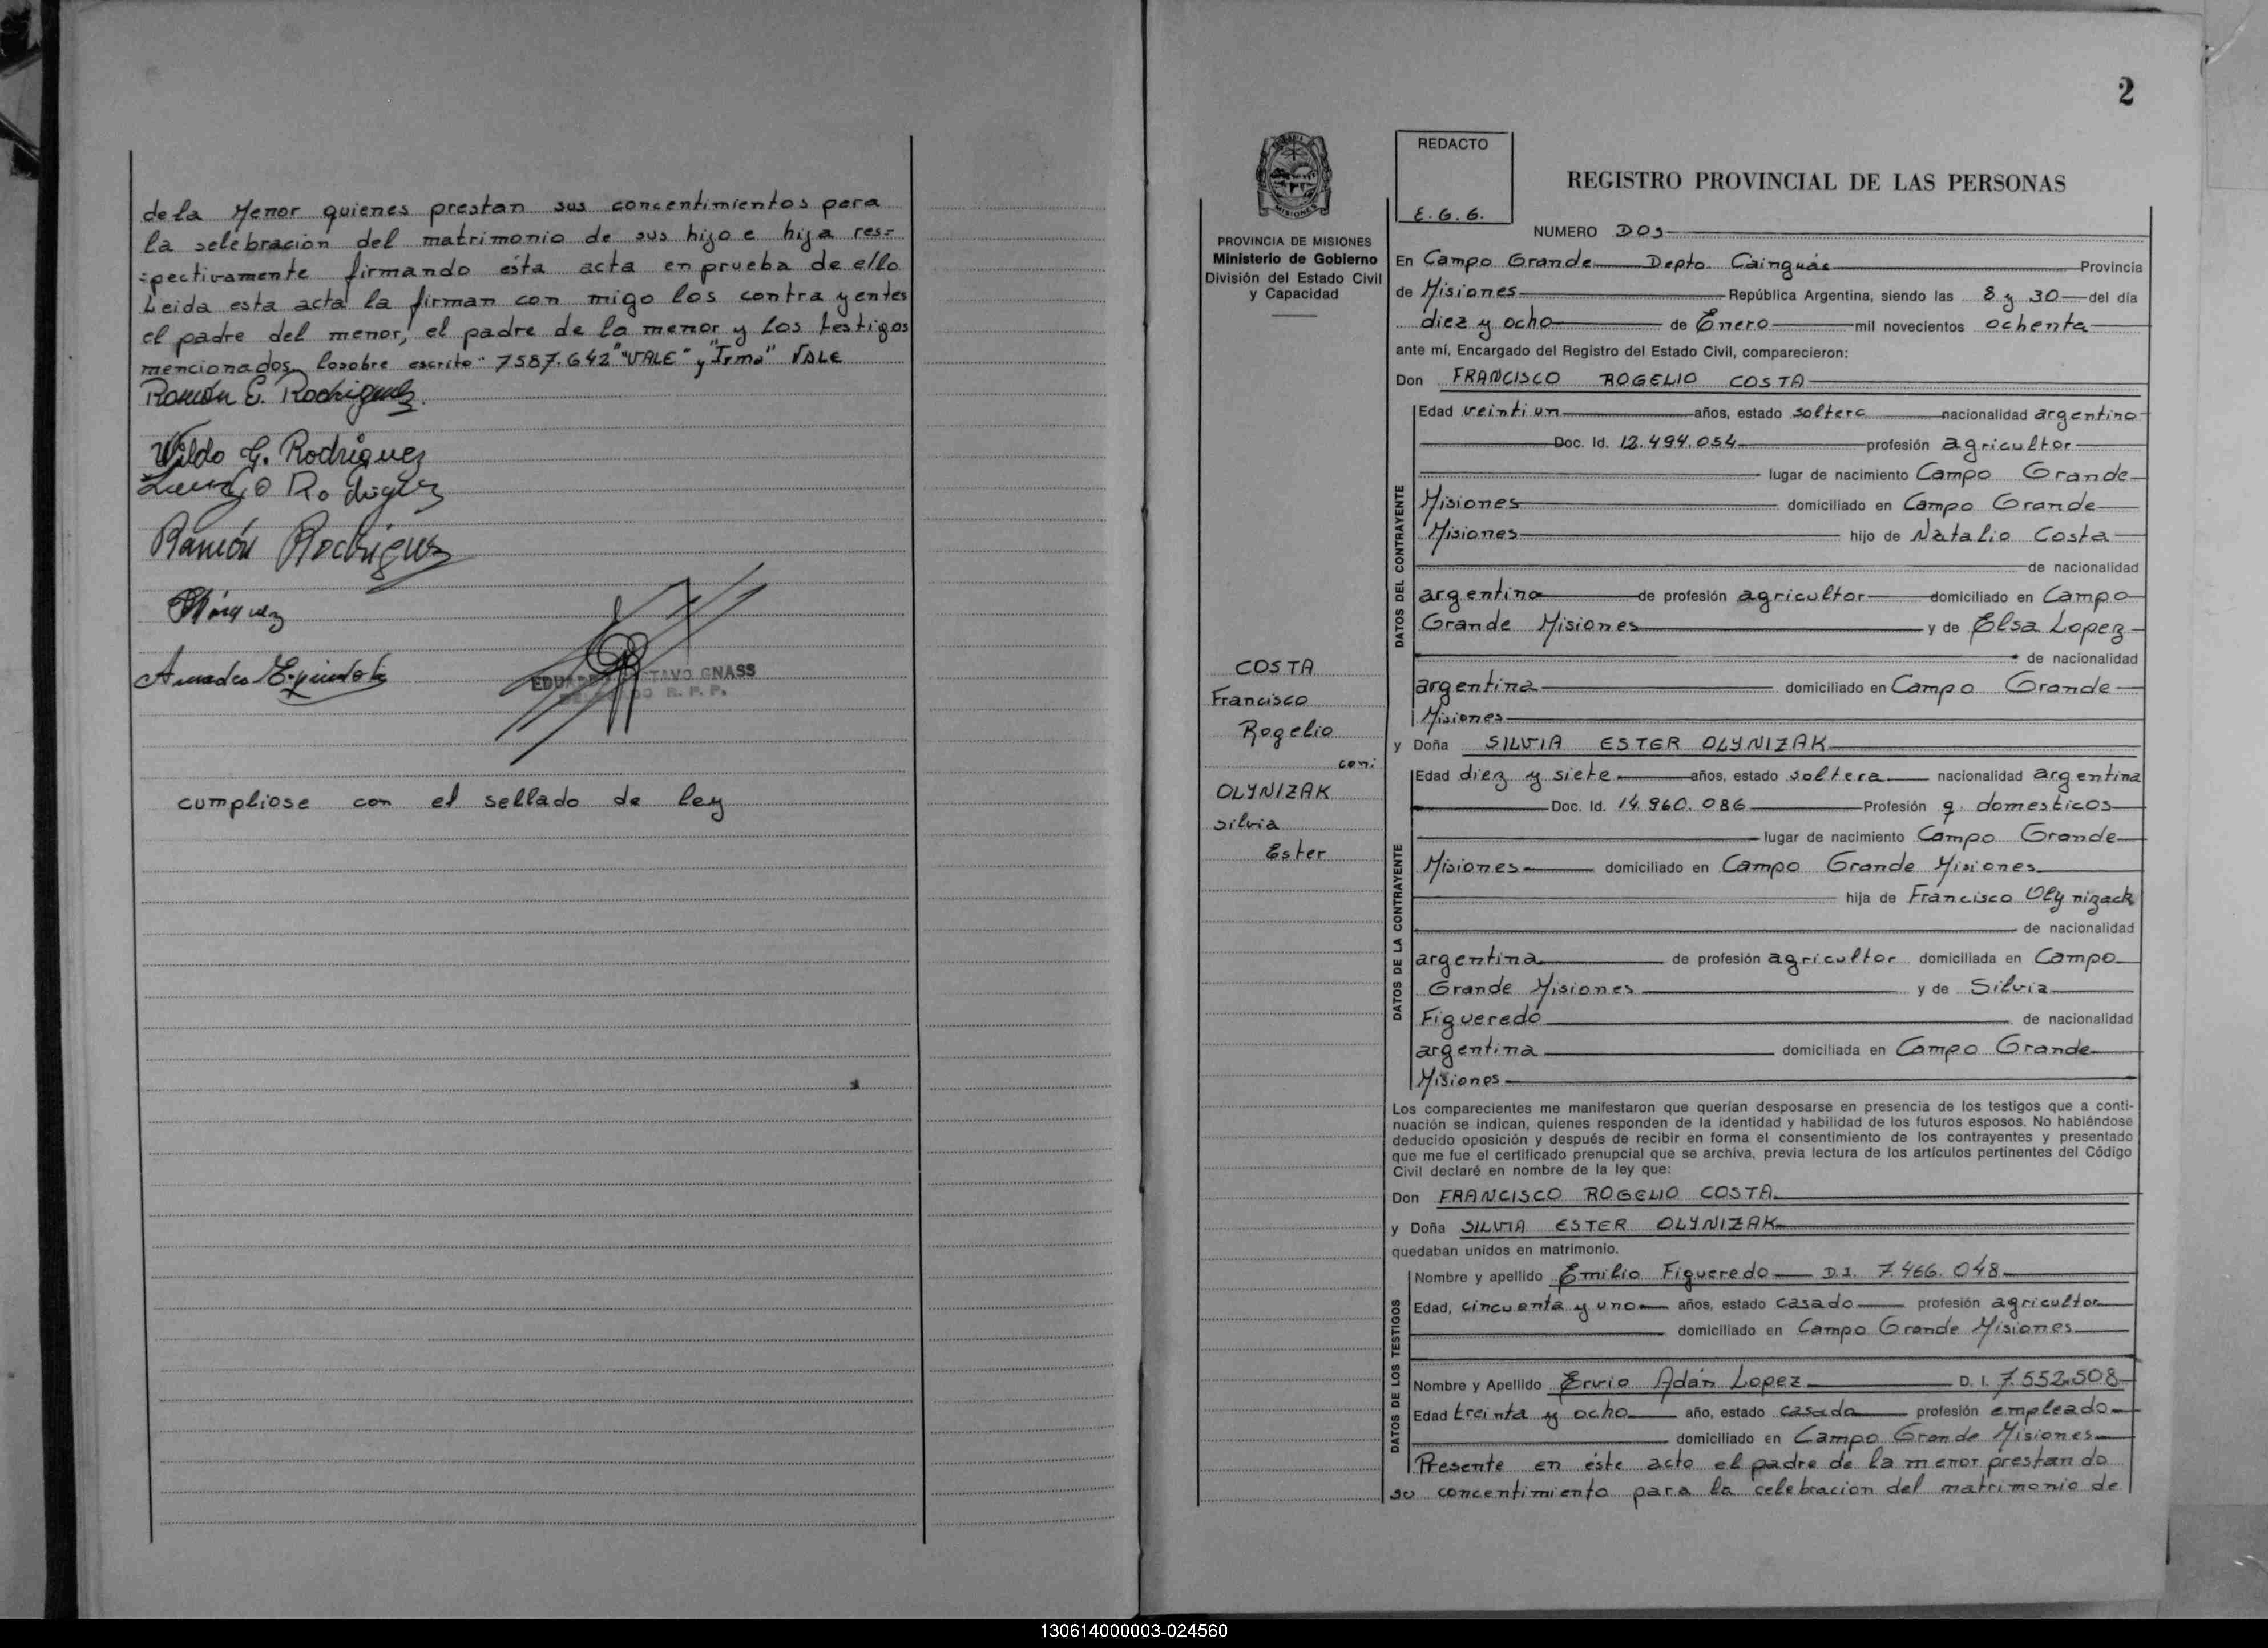 de la Menor quienes prestan sus concentimientos para
la selebracion del matrimonio de sus hijo e hija res=
=pectivamente firmando ésta acta en prueba de ello
Leida esta acta la firman con migo los contra yentes
el padre del menor, el padre de la menor y los testigos
mencionados losobre escrito "7587.642" "VALE" y "Irma" VALE
Ramón E. Rodriguez
Wildo G. Rodríguez
Rodriguez
Ramón Rodriguez
Márquez
Amadeo Espindola
EDUARDO OCTAVO GNASS
DELEGADO R. P. P.
cumpliose con el sellado de ley
2
MISIONES
PROVINCIA DE MISIONES
Ministerio de Gobierno
División del Estado Civil
y Capacidad
COSTA
Francisco
Rogelio
con:
OLYNIZAK
silvia
Ester
REDACTO
E. G. G.
REGISTRO PROVINCIAL DE LAS PERSONAS
NUMERO DOS
En Campo Grande Depto. Cainguás Provincia
de Misiones República Argentina, siendo las 8 y 30 del día
diez y ocho de Enero mil novecientos ochenta
ante mí, Encargado del Registro del Estado Civil, comparecieron:
Don FRANCISCO ROGELIO COSTA
DATOS DEL CONTRAYENTE
Edad veintiun años, estado soltero nacionalidad argentino
Doc. Id. 12.494.054 profesión agricultor
lugar de nacimiento Campo Grande
Misiones domiciliado en Campo Grande
Misiones hijo de Natalio Costa
de nacionalidad
argentino de profesión agricultor domiciliado en Campo
Grande Misiones y de Elsa Lopez
de nacionalidad
argentina domiciliado en Campo Grande
Misiones
y Doña SILVIA ESTER OLYNIZAK
DATOS DE LA CONTRAYENTE
Edad diez y siete años, estado soltera nacionalidad argentina
Doc. Id. 14.960.086 Profesión q. domesticos
lugar de nacimiento Campo Grande
Misiones domiciliado en Campo Grande Misiones
hija de Francisco Olynizack
de nacionalidad
argentina de profesión agricultor domiciliada en Campo
Grande Misiones y de Silvia
Figueredo de nacionalidad
argentina domiciliada en Campo Grande
Misiones
Los comparecientes me manifestaron que querían desposarse en presencia de los testigos que a conti-
nuación se indican, quienes responden de la identidad y habilidad de los futuros esposos. No habiéndose
deducido oposición y después de recibir en forma el consentimiento de los contrayentes y presentado
que me fue el certificado prenupcial que se archiva, previa lectura de los artículos pertinentes del Código
Civil declaré en nombre de la ley que:
Don FRANCISCO ROGELIO COSTA
y Doña SILVIA ESTER OLYNIZAK
quedaban unidos en matrimonio.
DATOS DE LOS TESTIGOS
Nombre y apellido Emilio Figueredo D.I. 7.466.048
Edad, cincuenta y uno años, estado casado profesión agricultor
domiciliado en Campo Grande Misiones
Nombre y Apellido Ervio Adán Lopez D. I. 7.552.508
Edad treinta y ocho año, estado casado profesión empleado
domiciliado en Campo Grande Misiones
Presente en éste acto el padre de la menor prestando
su concentimiento para la celebracion del matrimonio de
130614000003-024560